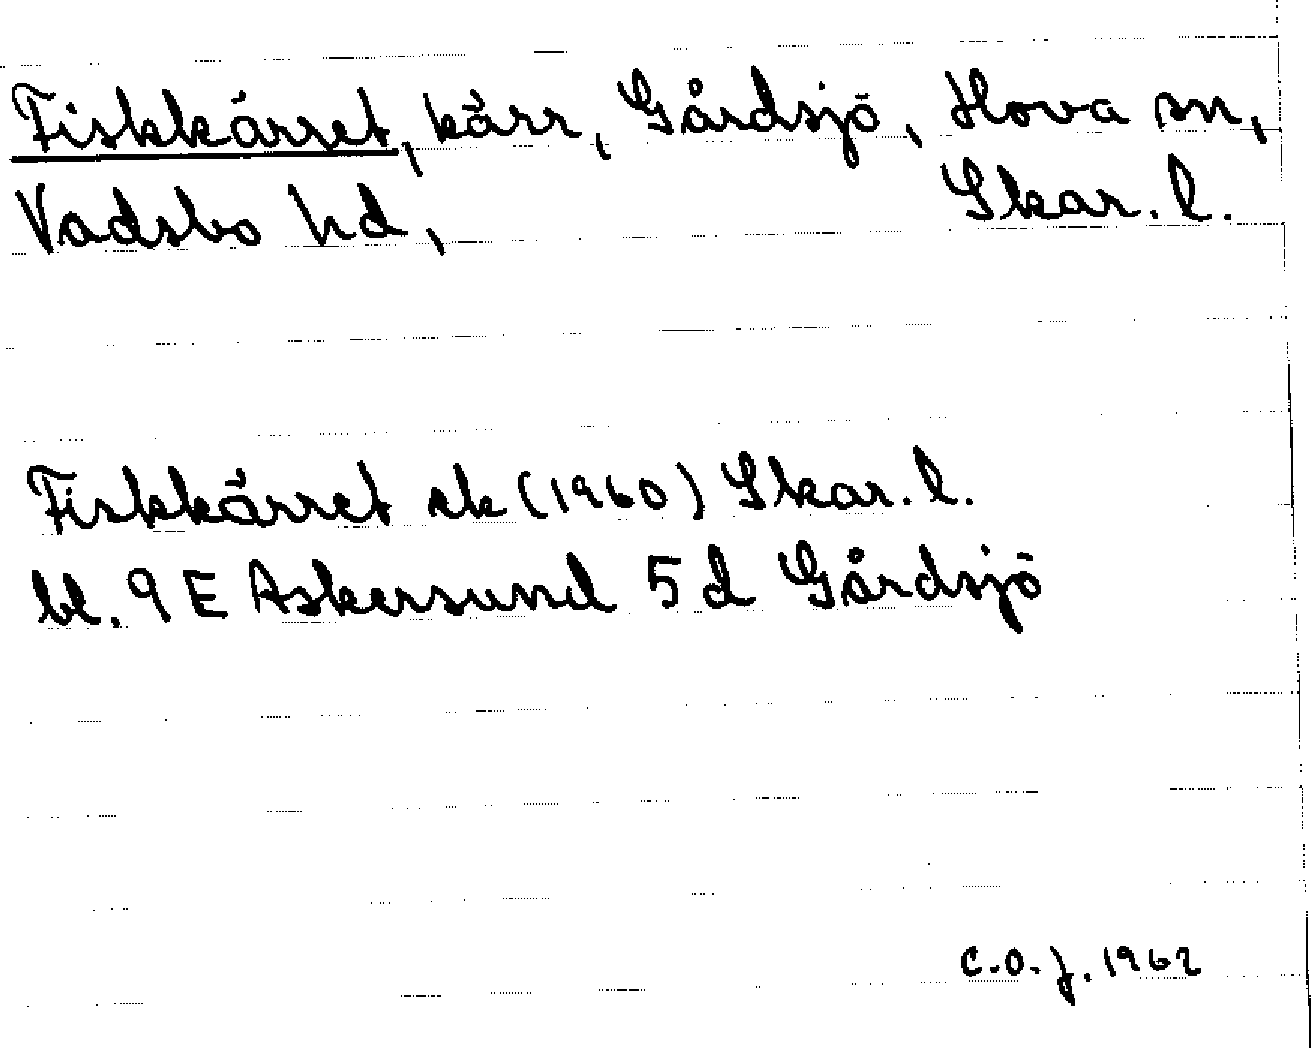 Fiskkärret, kärr, Gårdsjö, Hova sn,
Vadsbo hd, Skar. l.
Fiskkärret ek (1960) Skar. l.
bl. 9 E Askersund 5 d Gårdsjö
C.O.J. 1962